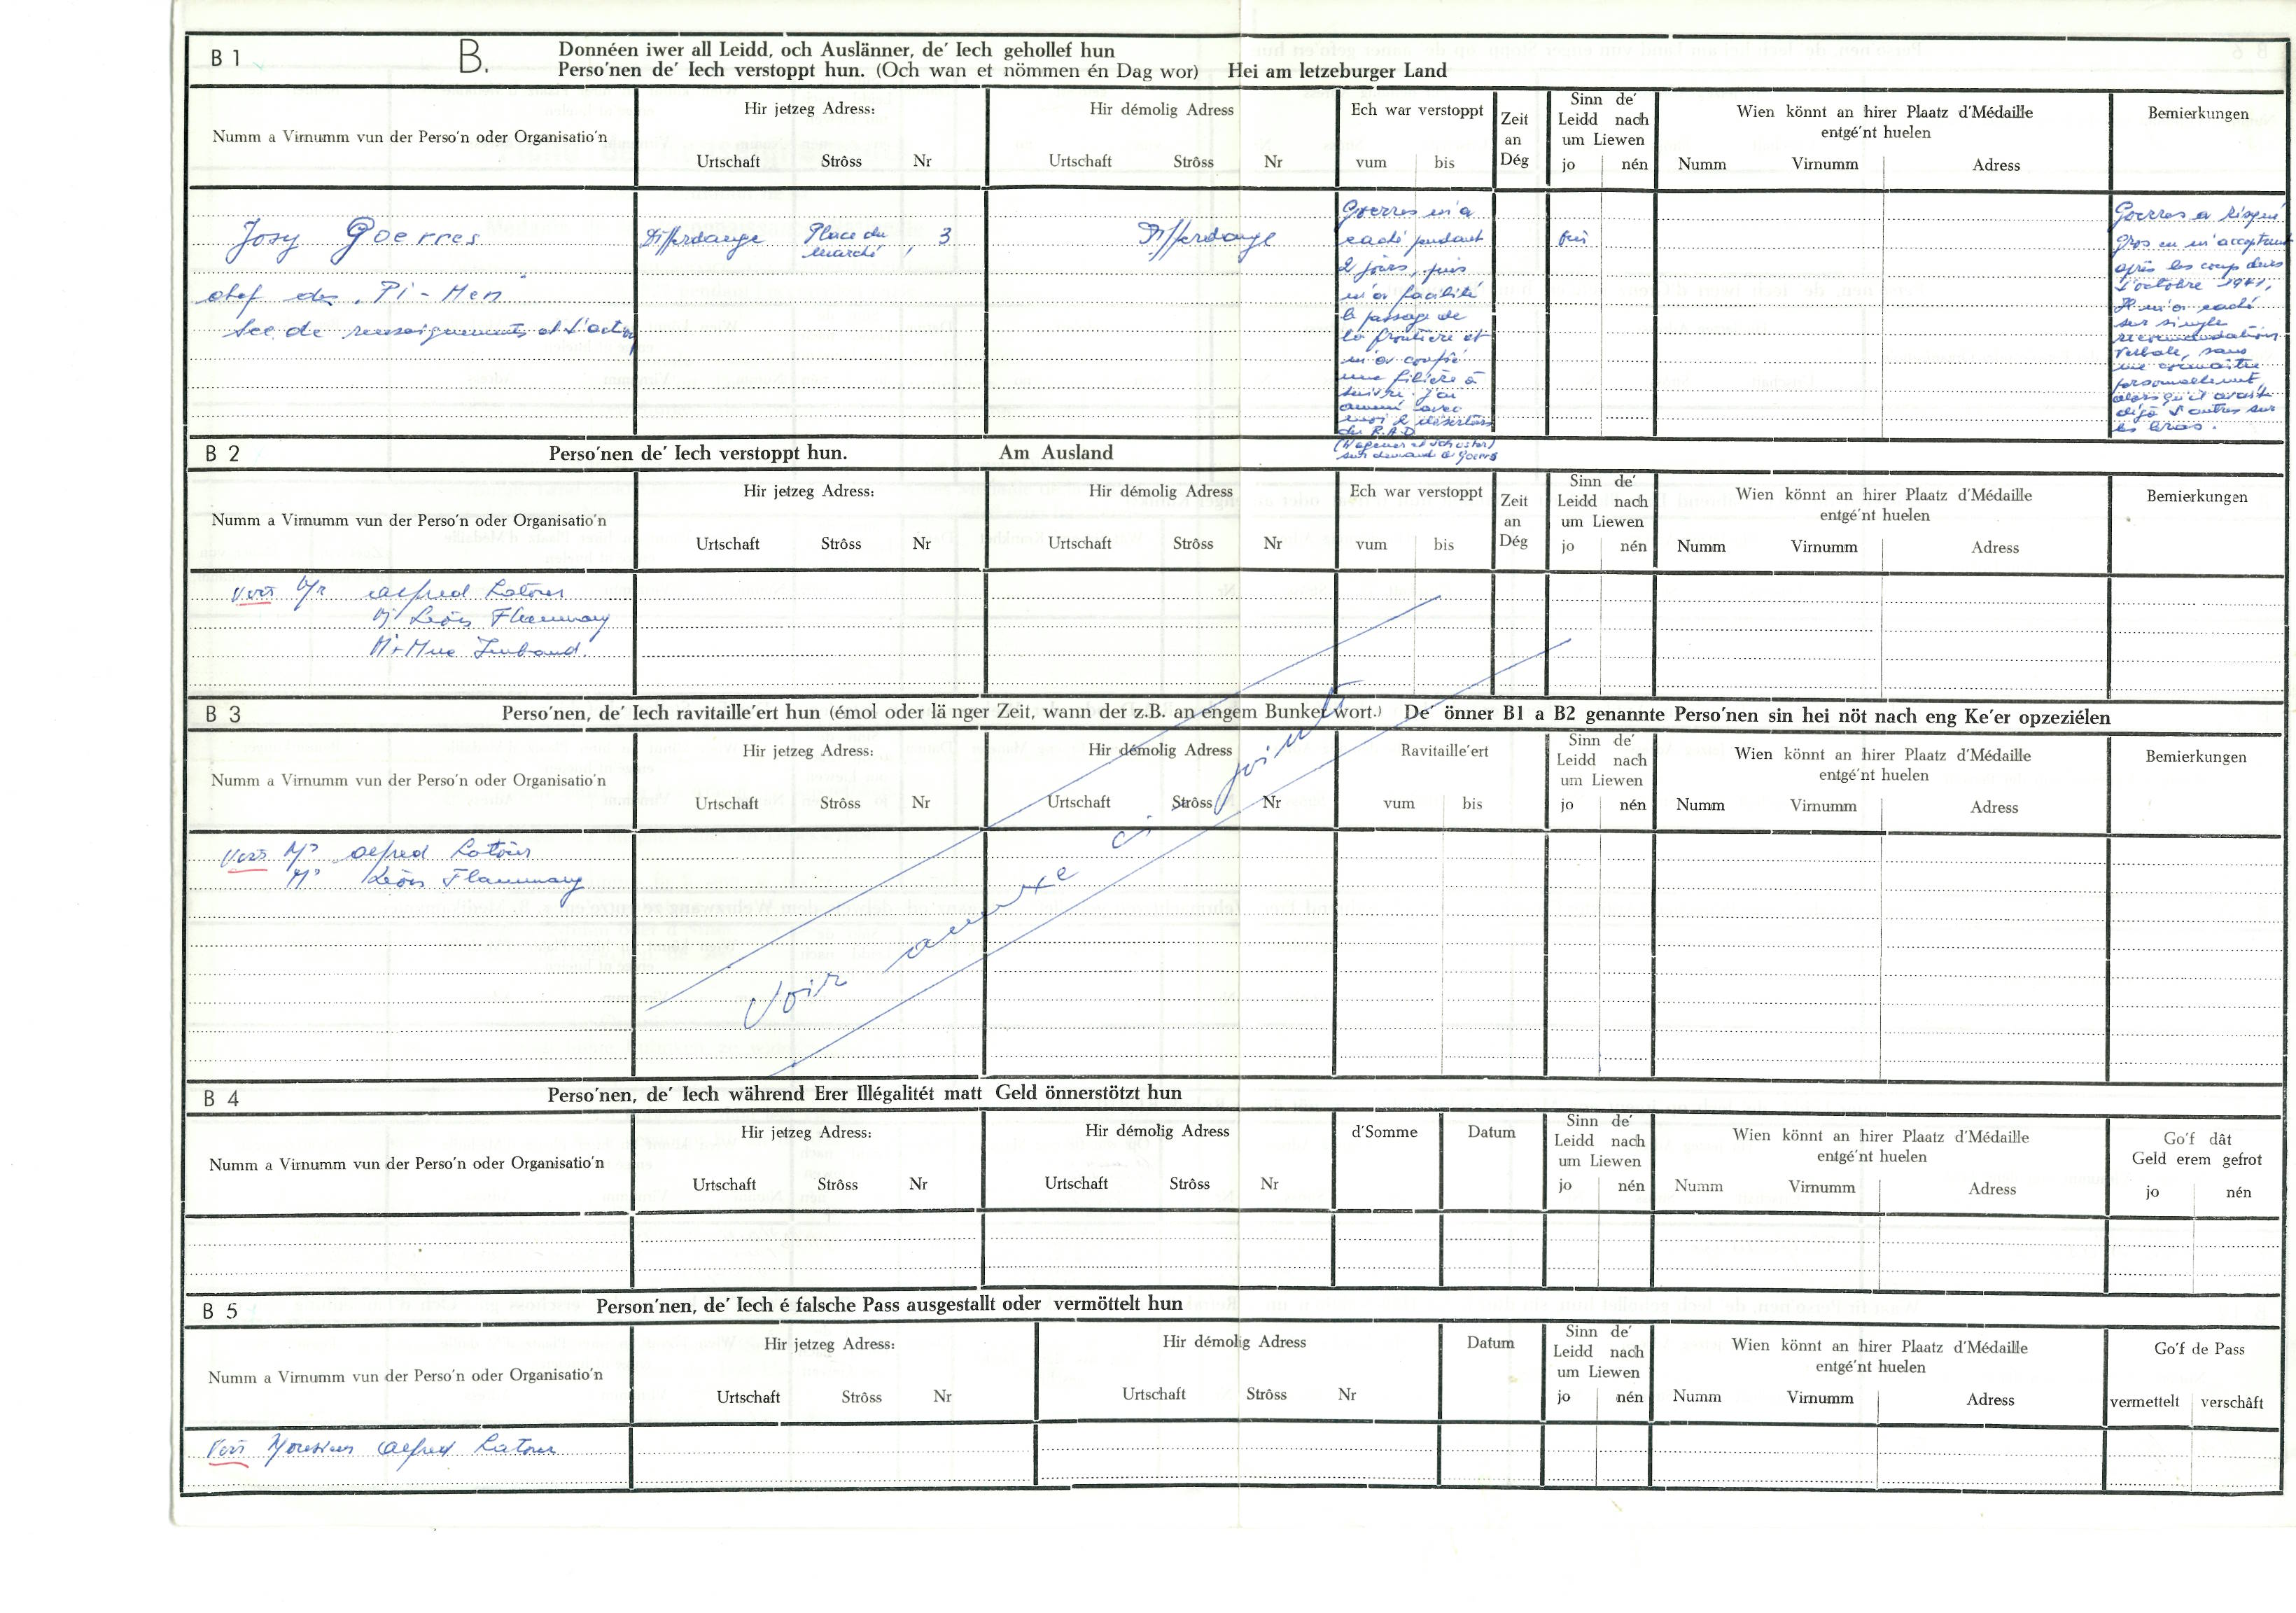 B 1
B.
Donnéen iwer all Leidd, och Auslänner, de' Iech gehollef hun
Perso'nen de' Iech verstoppt hun. (Och wan et nömmen én Dag wor) Hei am letzeburger Land
Numm a Virnumm vun der Perso'n oder Organisatio'n
Hir jetzeg Adress:
Urtschaft Strôss Nr
Hir démolig Adress
Urtschaft Strôss Nr
Ech war verstoppt
vum bis
Zeit
an
Dég
Sinn de'
Leidd nach
um Liewen
jo nén
Wien könnt an hirer Plaatz d'Médaille
entgé'nt huelen
Numm Virnumm Adresse
Bemierkungen
Josy Goerres
chef des "Pi-Men"
Sec. de renseignements et d'action
Differdange Place du
marché, 3
Differdange
Goerres m'a
caché pendant
2 jours, puis
m'a facilité
le passage de
la frontière et
m'a confié
une filière à
suivre. J'ai
amené avec
moi 2 déserteurs
du R.A.D.
(Wagener et Schuster)
sur demande de Goerres
oui
Goerres a risqué
gros en m'acceptant
après les coups durs
d'octobre 1941,
Il m'a caché
sur simple
recommandation
verbale, sans
me connaître
personnellement,
alors qu'il avait
déjà d'autres sur
les bras.
B 2
Perso'nen de' Iech verstoppt hun. Am Ausland
Numm a Virnumm vun der Perso'n oder Organisatio'n
Hir jetzeg Adress:
Urtschaft Strôss Nr
Hir démolig Adress
Urtschaft Strôss Nr
Ech war verstoppt
vum bis
Zeit
an
Dég
Sinn de'
Leidd nach
um Liewen
jo nén
Wien könnt an hirer Plaatz d'Médaille
entgé'nt huelen
Numm Virnumm Adress
Bemierkungen
Voir Mr Alfred Latour
Mr Léon Flammang
Mr Mme
B 3
Perso'nen, de' Iech ravitaille'ert hun (émol oder länger Zeit, wann der z.B. an engem Bunker wort.) De' önner B1 a B2 genannte Perso'nen sin hei nöt nach eng Ke'er opzeziélen
Numm a Virnumm vun der Perso'n oder Organisatio'n
Hir jetzeg Adress:
Urtschaft Strôss Nr
Hir démolig Adress
Urtschaft Strôss Nr
Ravitaille'ert
vum bis
Sinn de'
Leidd nach
um Liewen
jo nén
Wien könnt an hirer Plaatz d'Médaille
entgé'nt huelen
Numm Virnumm Adress
Bemierkungen
Voir Mr Alfred Latour
Mr Léon Flammang
Voir annexe ci joint
B 4
Perso'nen, de' Iech während Erer Illégalitét matt Geld önnerstötzt hun
Numm a Virnumm vun der Perso'n oder Organisatio'n
Hir jetzeg Adress:
Urtschaft Strôss Nr
Hir démolig Adress
Urtschaft Strôss Nr
d'Somme
Datum
Sinn de'
Leidd nach
um Liewen
jo nén
Wien könnt an hirer Plaatz d'Médaille
entgé'nt huelen
Numm Virnumm Adress
Go'f dât
Geld erem gefrot
jo nén
B 5
Person'nen, de' Iech é falsche Pass ausgestallt oder vermöttelt hun
Numm a Virnumm vun der Perso'n oder Organisatio'n
Hir jetzeg Adress:
Urtschaft Strôss Nr
Hir démolig Adress
Urtschaft Strôss Nr
Datum
Sinn de'
Leidd nach
um Liewen
jo nén
Wien könnt an hirer Plaatz d'Médaille
entgé'nt huelen
Numm Virnumm Adress
Go'f de Pass
vermettelt verschâft
Voir Monsieur Alfred Latour